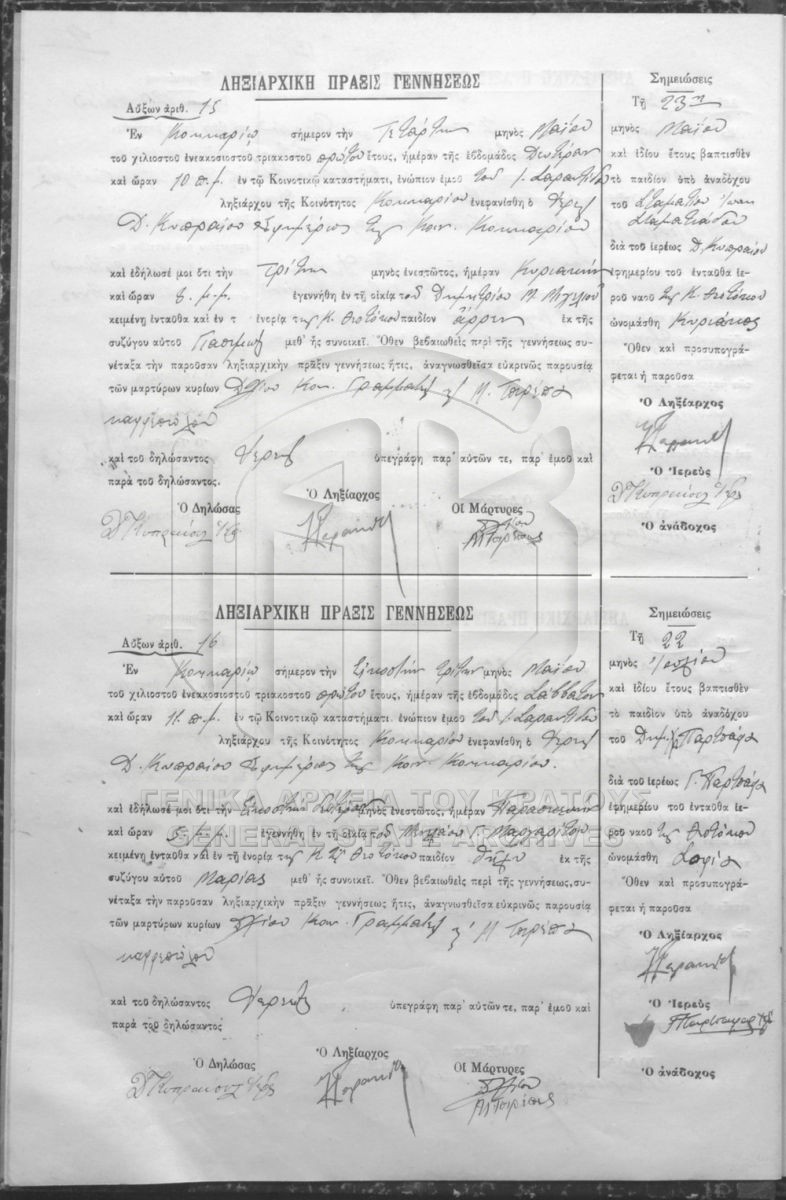 ΛΗΞΙΑΡΧΙΚΗ ΠΡΑΞΙΣ ΓΕΝΝΗΣΕΩΣ
Αὔξων ἀριθ. 15
Ἐν Κοκκαρίῳ σήμερον τὴν Τετάρτην μηνὸς Μαΐου
τοῦ χιλιοστοῦ ἐνεακοσιοστοῦ τριακοστοῦ πρώτου ἔτους, ἡμέραν τῆς ἑβδομάδος Δευτέραν
καὶ ὥραν 10 π.μ. ἐν τῷ Κοινοτικῷ καταστήματι, ἐνώπιον ἐμοῦ τοῦ Ι. Σαραντίδου
ληξιάρχου τῆς Κοινότητος Κοκκαρίου ἐνεφανίσθη ὁ Ἱερεὺς
Δ. Κυπραίου Ἐφημέριος τῆς Κοιν. Κοκκαρίου
καὶ ἐδήλωσέ μοι ὅτι τὴν τρίτην μηνὸς ἐνεστῶτος, ἡμέραν Κυριακὴν
καὶ ὥραν 8 μ.μ. ἐγεννήθη ἐν τῇ οἰκίᾳ τοῦ Δημητρίου Μ.
κειμένῃ ἐνταῦθα καὶ ἐν τ ἐνορίᾳ τῆς Κ. Θεοτόκου παιδίον ἄρρεν ἐκ τῆς
συζύγου αὐτοῦ μεθ' ἧς συνοικεῖ. Ὅθεν βεβαιωθεὶς περὶ τῆς γεννήσεως συ-
νέταξα τὴν παροῦσαν ληξιαρχικὴν πρᾶξιν γεννήσεως ἥτις, ἀναγνωσθεῖσα εὐκρινῶς παρουσίᾳ
τῶν μαρτύρων κυρίων Κοιν. Γραμματέως κ' Μ. Τσιρίπα
καφφεπώλου
καὶ τοῦ δηλώσαντος Ἱερέως ὑπεγράφη παρ' αὐτῶν τε, παρ' ἐμοῦ καὶ
παρὰ τοῦ δηλώσαντος.
Ὁ Δηλώσας Ὁ Ληξίαρχος Οἱ Μάρτυρες
Σημειώσεις
Τῇ 23ῃ
μηνὸς Μαΐου
καὶ ἰδίου ἔτους βαπτισθὲν
τὸ παιδίον ὑπὸ ἀναδόχου
τοῦ Σταματίου
Σταματιάδου
διὰ τοῦ ἱερέως Δ. Κυπραίου
ἐφημερίου τοῦ ἐνταῦθα ἱε-
ροῦ ναοῦ τῆς Κ. Θεοτόκου
ὠνομάσθη Κυριάκος
Ὅθεν καὶ προσυπογρά-
φεται ἡ παροῦσα
Ὁ Ληξίαρχος
Ὁ Ἱερεὺς
Ὁ ἀνάδοχος
ΛΗΞΙΑΡΧΙΚΗ ΠΡΑΞΙΣ ΓΕΝΝΗΣΕΩΣ
Αὔξων ἀριθ. 16
Ἐν Κοκκαρίῳ σήμερον τὴν Εἰκοστὴν τρίτην μηνὸς Μαΐου
τοῦ χιλιοστοῦ ἐνεακοσιοστοῦ τριακοστοῦ πρώτου ἔτους, ἡμέραν τῆς ἑβδομάδος Σάββατον
καὶ ὥραν 11 π.μ. ἐν τῷ Κοινοτικῷ καταστήματι. ἐνώπιον ἐμοῦ τοῦ Ι. Σαραντίδου
ληξιάρχου τῆς Κοινότητος Κοκκαρίου ἐνεφανίσθη ὁ Ἱερεὺς
Δ. Κυπραίου Ἐφημέριος τῆς Κοιν. Κοκκαρίου.
καὶ ἐδήλωσέ μοι ὅτι τὴν Εἰκοστὴν δευτέραν μηνὸς ἐνεστῶτος, ἡμέραν Παρασκευὴν
καὶ ὥραν 5 μ.μ. ἐγεννήθη ἐν τῇ οἰκίᾳ τοῦ Γ. Μαργαρίτου
κειμένῃ ἐνταῦθα καὶ ἐν τῇ ἐνορίᾳ τῆς Θεοτόκου παιδίον θῆλυ ἐκ τῆς
συζύγου αὐτοῦ Μαρίας μεθ' ἧς συνοικεῖ. Ὅθεν βεβαιωθεὶς περὶ τῆς γεννήσεως, συ-
νέταξα τὴν παροῦσαν ληξιαρχικὴν πρᾶξιν γεννήσεως ἥτις, ἀναγνωσθεῖσα εὐκρινῶς παρουσίᾳ
τῶν μαρτύρων κυρίων Κοιν. Γραμματέως κ' Μ. Τσιρίπα
καφφεπώλου
καὶ τοῦ δηλώσαντος Ἱερέως ὑπεγράφη παρ' αὐτῶν τε, παρ' ἐμοῦ καὶ
παρὰ τοῦ δηλώσαντος
Ὁ Δηλώσας Ὁ Ληξίαρχος Οἱ Μάρτυρες
Σημειώσεις
Τῇ 22
μηνὸς Ἰουλίου
καὶ ἰδίου ἔτους βαπτισθὲν
τὸ παιδίον ὑπὸ ἀναδόχου
τοῦ Δημ.
διὰ τοῦ ἱερέως Γ.
ἐφημερίου τοῦ ἐνταῦθα ἱε-
ροῦ ναοῦ τῆς Θεοτόκου
ὠνομάσθη Σοφία
Ὅθεν καὶ προσυπογρά-
φεται ἡ παροῦσα
Ὁ Ληξίαρχος
Ὁ Ἱερεὺς
Ὁ ἀνάδοχος
ΓΕΝΙΚΑ ΑΡΧΕΙΑ ΤΟΥ ΚΡΑΤΟΥΣ
GENERAL STATE ARCHIVES